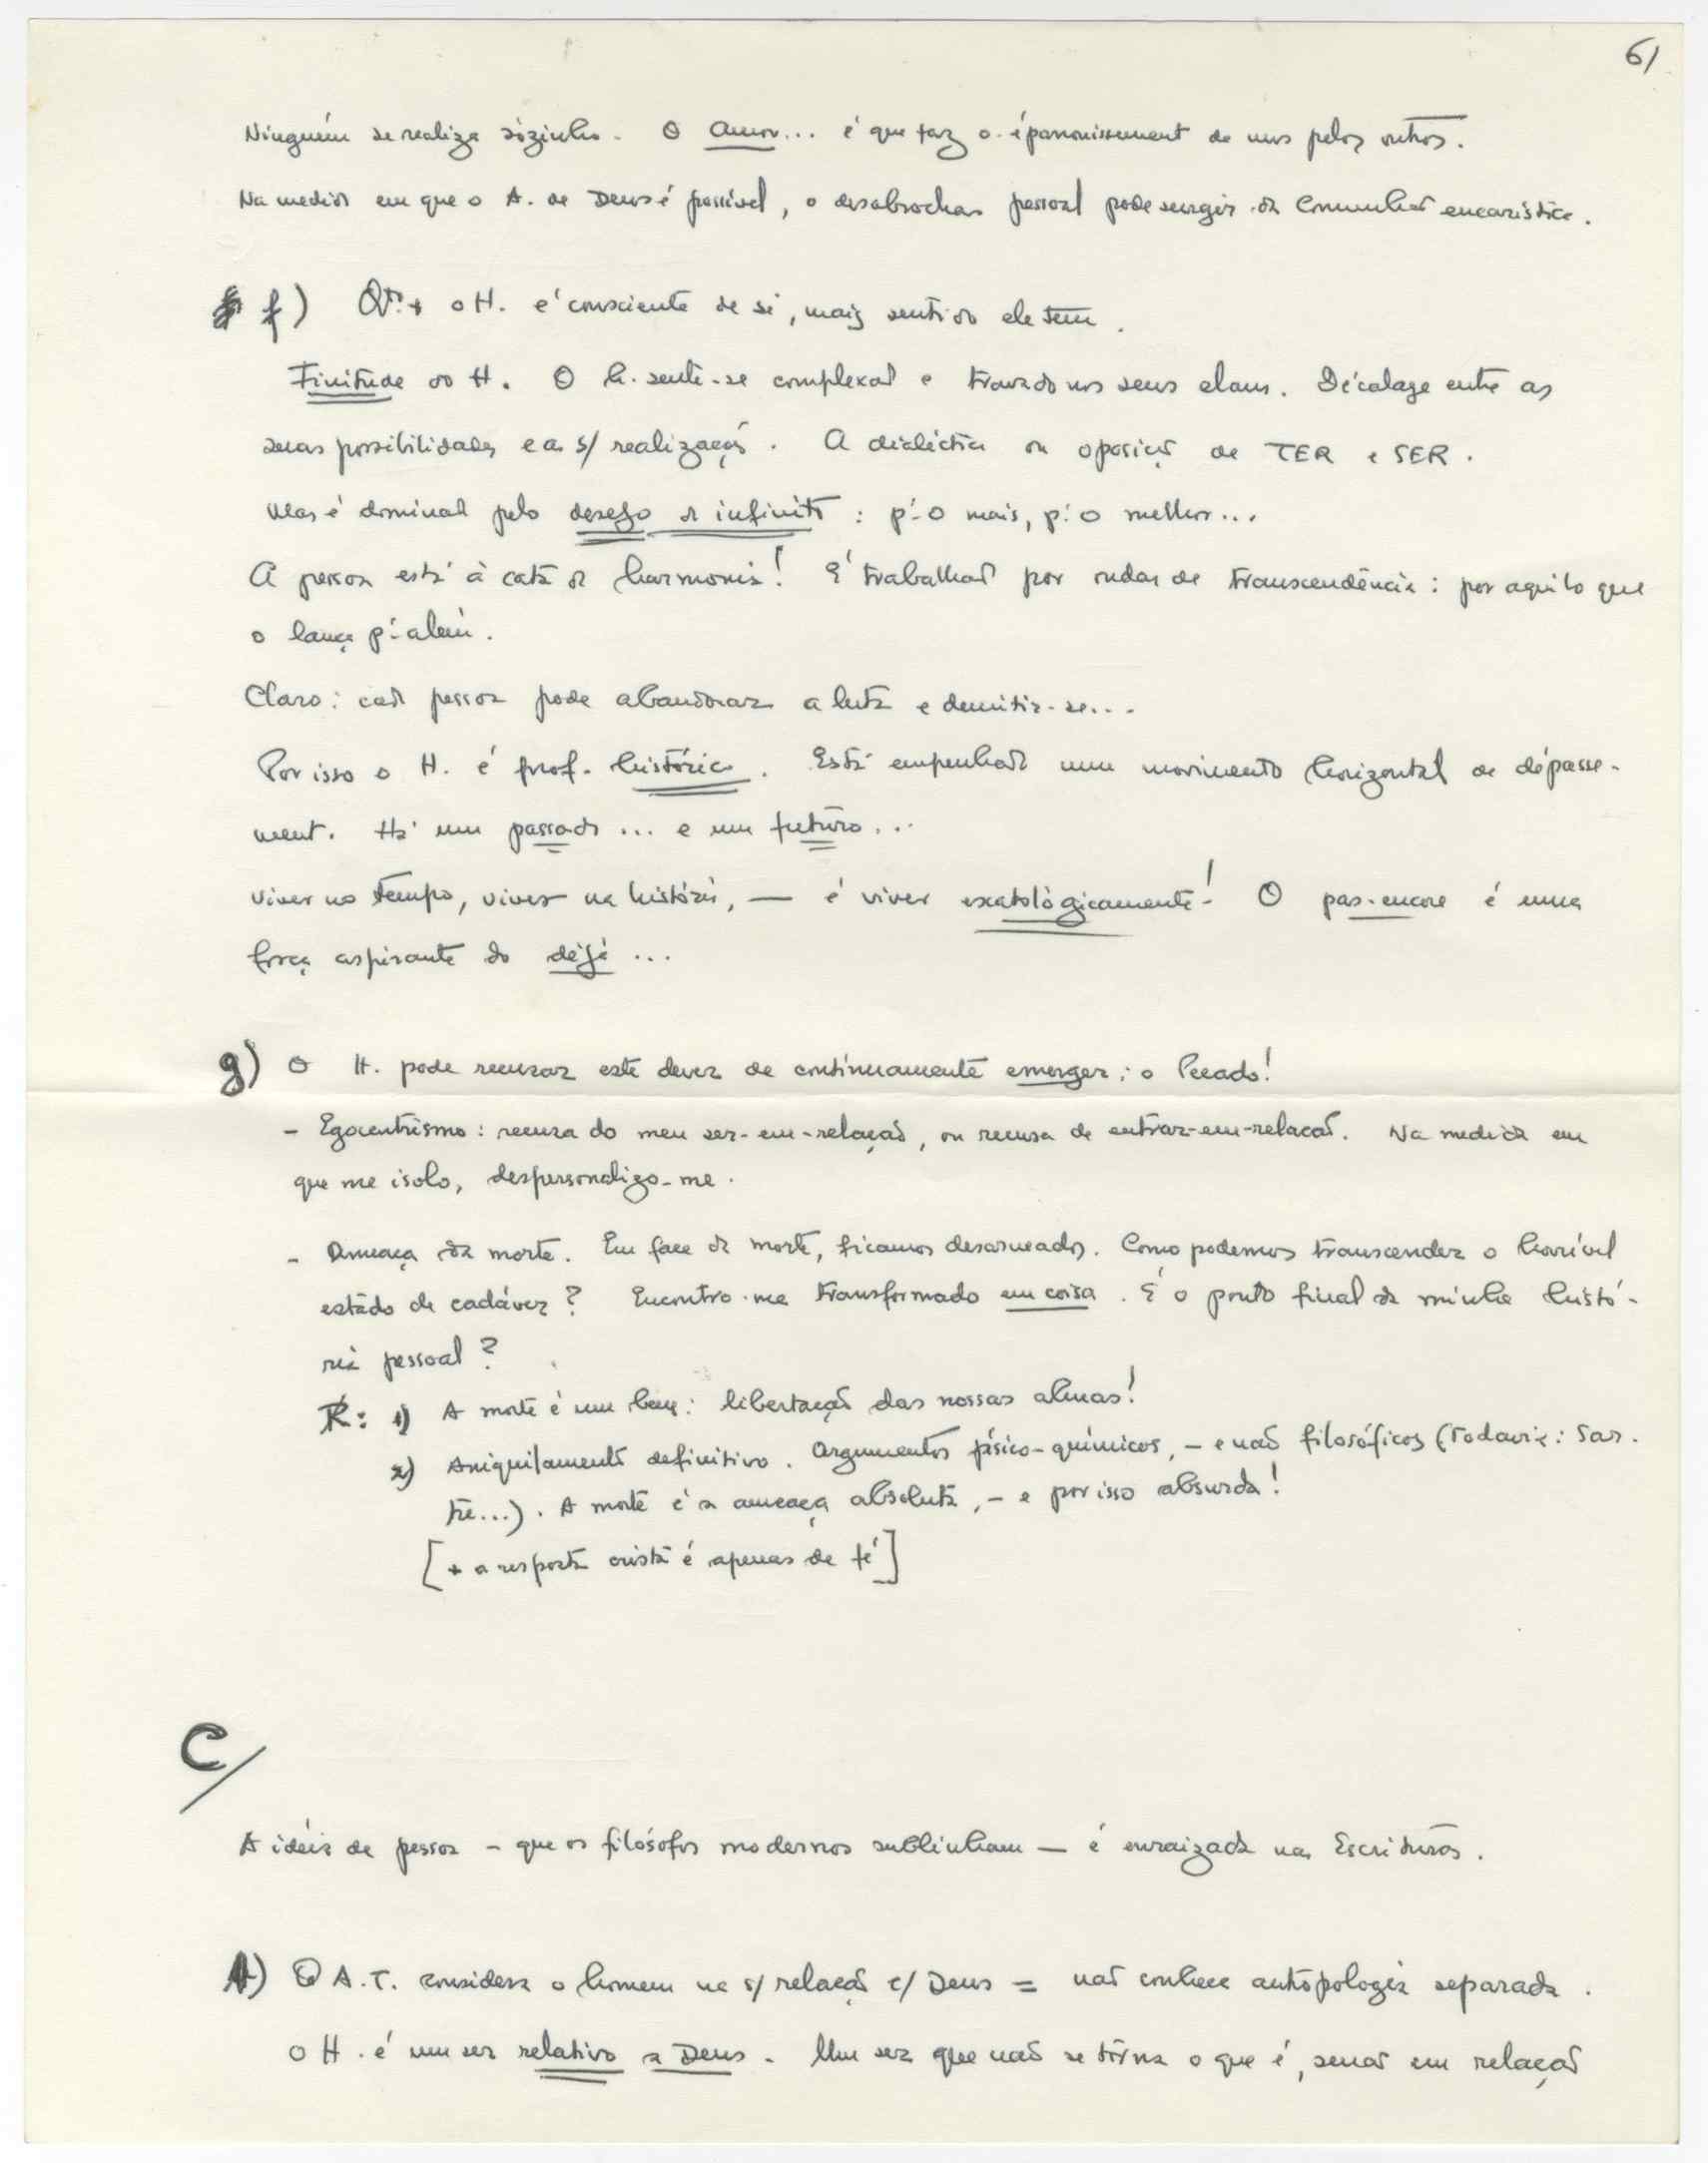 6/
Ninguém se realiza sòzinho. O amor... é que faz o épanouissement de uns pelos outros.
Na medida em que o A. de Deus é possível, o desabrochar pessoal pode surgir da Comunhão eucarística.
f) Qt.º + o H. é consciente de si, mais sentido ele tem.
Finitude do H. O h. sente-se complexado e travado nos seus elans. Décalage entre as
suas possibilidades e as s/ realizações. A dialéctica ou oposição de TER e SER.
Mas é dominado pelo desejo de infinito: p.ª o mais, p.ª o melhor...
A pessoa está à cata de harmonia! É trabalhado por ondas de transcendência: por aquilo que
o lança p.ª além.
Claro: cada pessoa pode abandonar a luta e demitir-se...
Por isso o H. é prof. histórico. Está empenhado num movimento horizontal de dépasse-
ment. Há um passado ... e um futuro...
Viver no tempo, viver na história, — é viver escatològicamente! O pas-encore é uma
força aspirante do déjà ...
g) O H. pode recusar este dever de contìnuamente emerger: o Pecado!
- Egocentrismo: recusa do meu ser-em-relação, ou recusa de entrar-em-relação. Na medida em
que me isolo, despersonalizo-me.
- Ameaça da morte. Em face da morte, ficamos desarmados. Como podemos transcender o horrível
estado de cadáver? Encontro-me transformado em coisa. É o ponto final da minha histó-
ria pessoal?
R: 1) A morte é um bem: libertação das nossas almas!
2) Aniquilamento definitivo. Argumentos físico-químicos, - e não filosóficos (Todavia: Sar-
tre...). A morte é a ameaça absoluta, - e por isso absurda!
[+ a resposta cristã é apenas de fé]
C/
A idéia de pessoa - que os filósofos modernos sublinham — é enraizada nas Escrituras.
A) O A.T. considera o homem na s/ relação c/ Deus = não conhece antropologia separada.
O H. é um ser relativo a Deus. Um ser que não se torna o que é, senão em relação